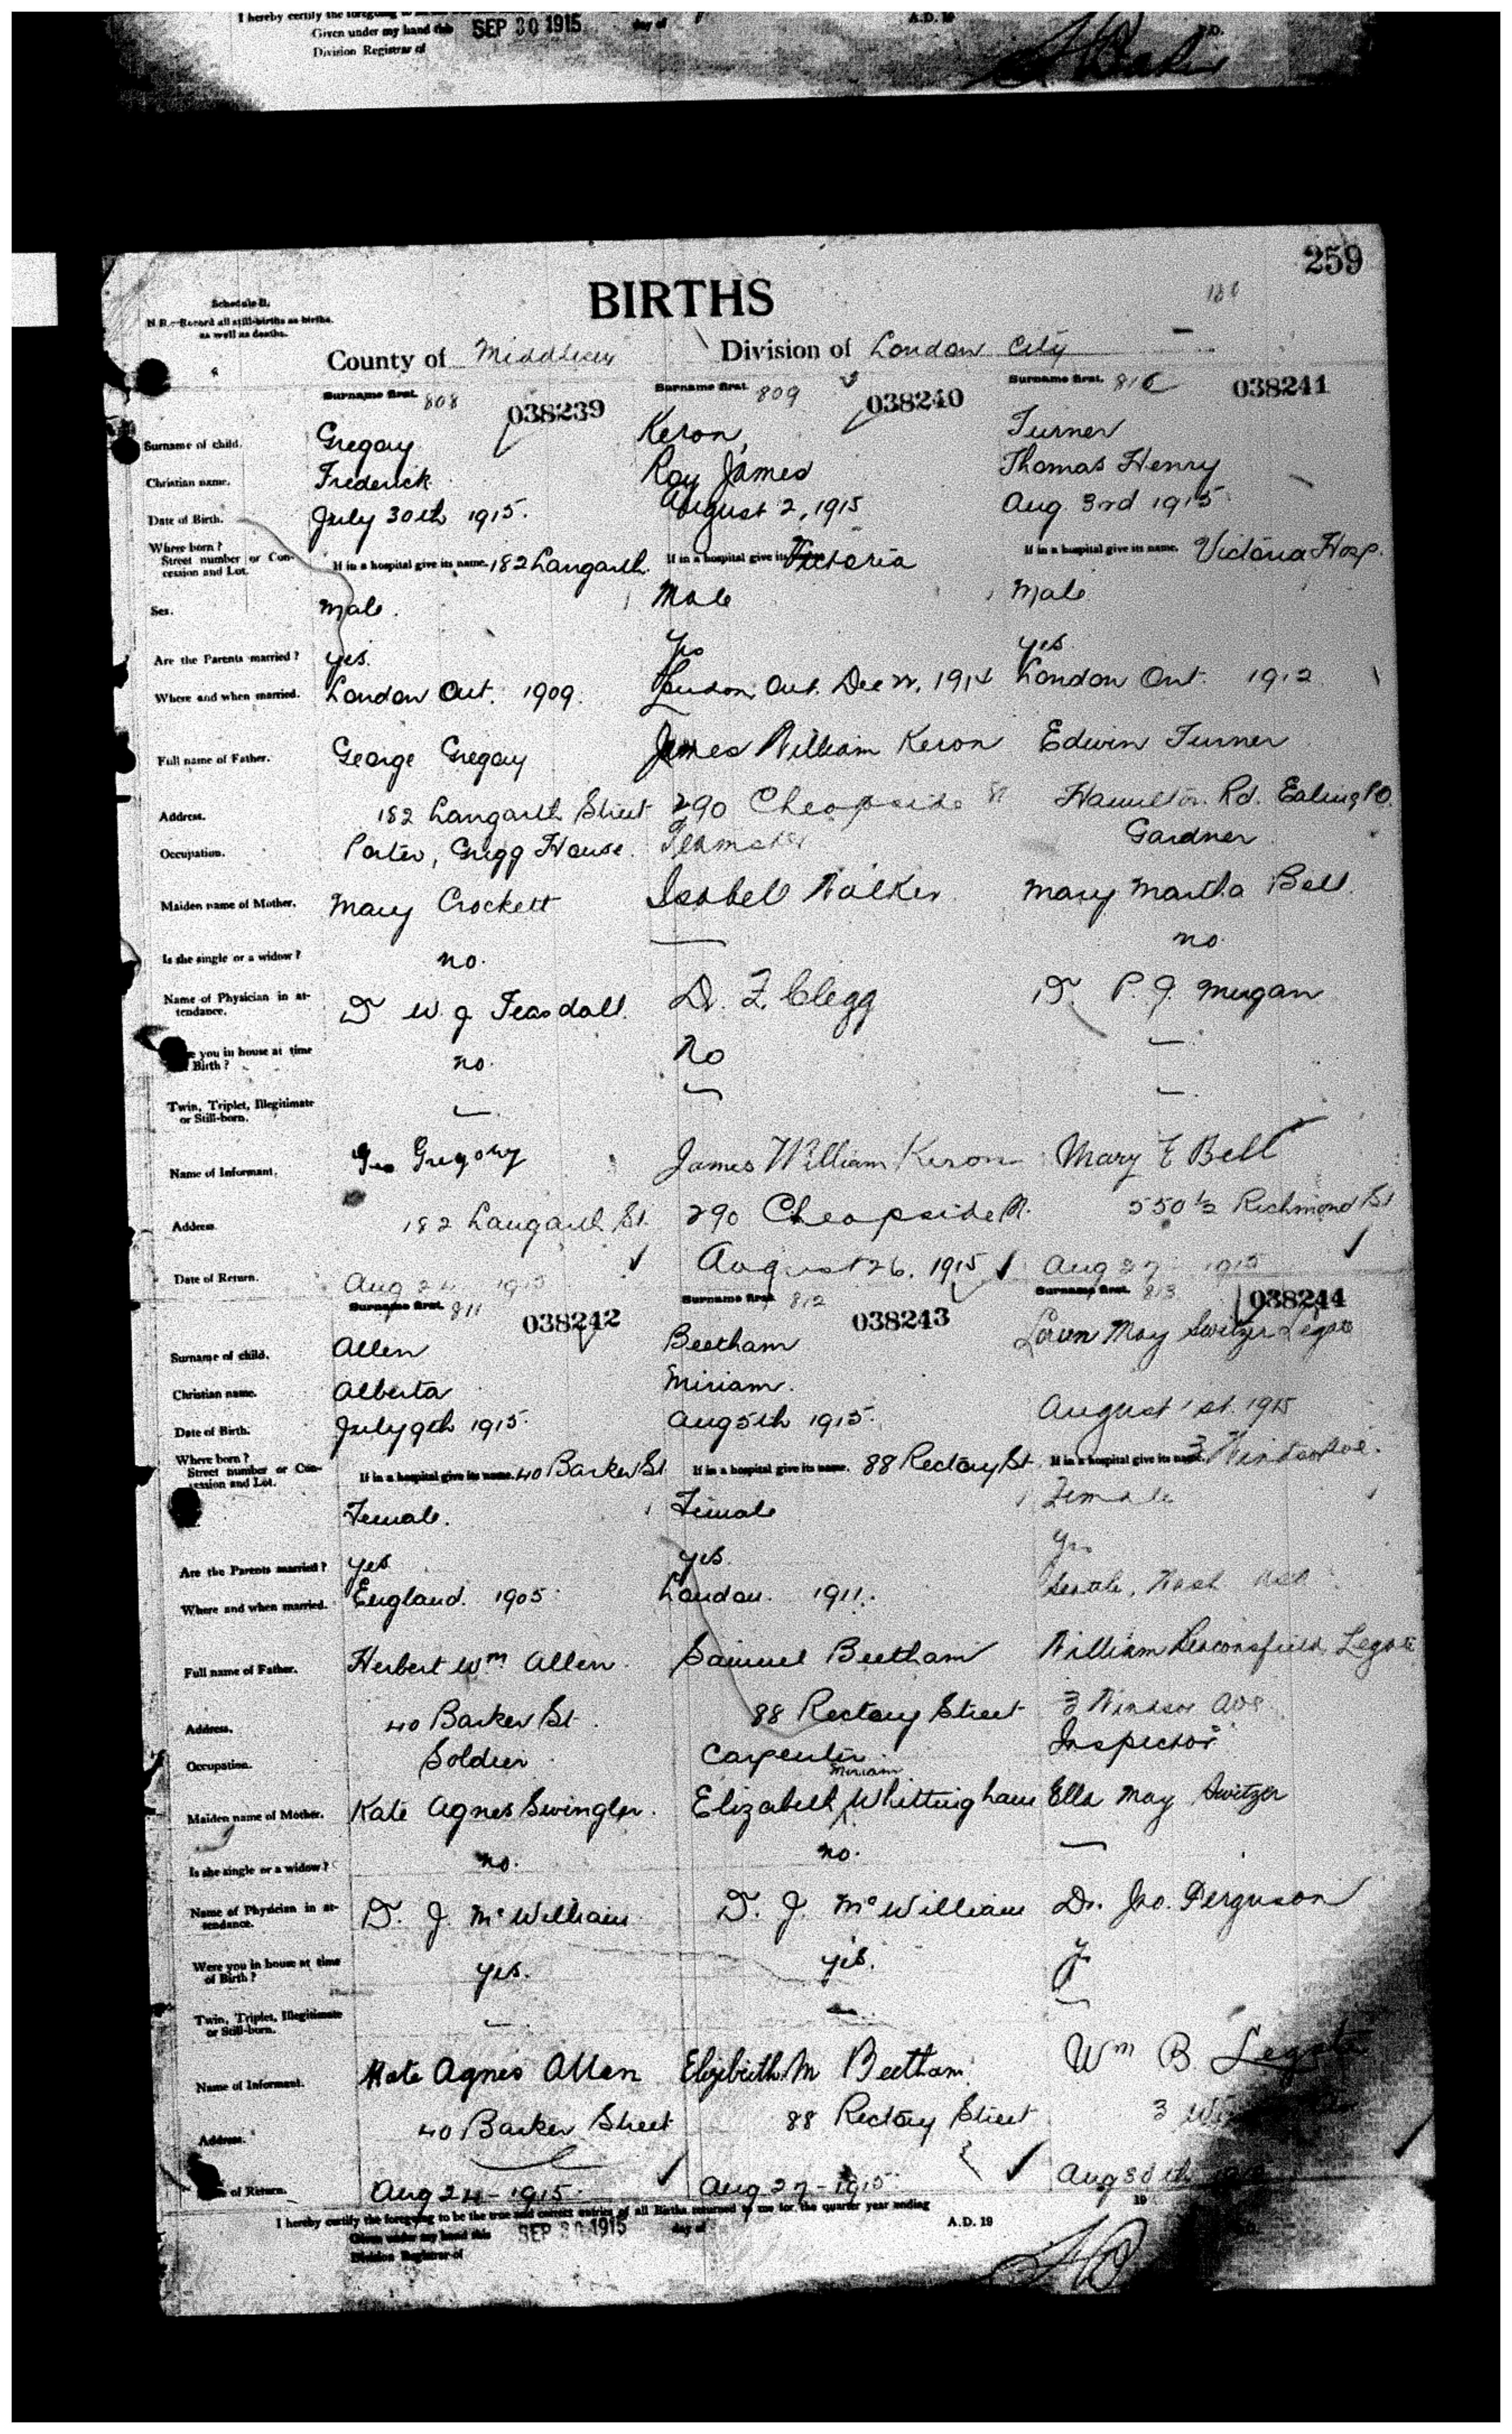 I hereby certify the foregoing to
Given under my hand this SEP 30 1915 day of A.D. 19
Division Registrar of
259
BIRTHS
Schedule B.
N.B.—Record all still-births as births,
as well as deaths.
County of Middlesex Division of London City
Surname first. 808 038239 Surname first. 809 038240 Surname first. 810 038241
Surname of child. Gregory Keron, Turner
Christian name. Frederick Roy James Thomas Henry
Date of Birth. July 30th 1915. August 2, 1915 Aug 3rd 1915
Where born?
Street number or Concession and Lot. If in a hospital give its name. 182 Langarth. If in a hospital give its name Victoria If in a hospital give its name. Victoria Hosp.
Sex. Male. Male Male
Are the Parents married? yes. Yes yes
Where and when married. London Ont. 1909. London, Ont. Dec 22, 1914 London Ont. 1912
Full name of Father. George Gregory James William Keron Edwin Turner
Address. 182 Langarth Street 290 Cheapside St Hamilton Rd. Ealing P.O.
Occupation. Porter, Grigg House. Teamster Gardner
Maiden name of Mother. Mary Crockett Isabell Walker Mary Martha Bell.
Is she single or a widow? no. — no.
Name of Physician in attendance. Dr W. J. Teasdall. Dr. F. Clegg Dr. P. J. Mugan
you in house at time
Birth? no. No —
Twin, Triplet, Illegitimate
or Still-born. — — —
Name of Informant. Geo Gregory James William Keron Mary E Bell
Address. 182 Langarth St. 290 Cheapside St. 550 1/2 Richmond St
Date of Return. Aug 24 1915 August 26, 1915 Aug 27 1915
Surname first. 811 038242 Surname first. 812 038243 Surname first. 813 038244
Surname of child. Allen Beetham Loreen May Switzer Legate
Christian name. Alberta Miriam.
Date of Birth. July 9th 1915. Aug 5th 1915. August 1st. 1915
Where born?
Street number or Concession and Lot. If in a hospital give its name. 40 Barker St If in a hospital give its name. 88 Rectory St. If in a hospital give its name. 3 Windsor Ave.
Female. Female Female
Are the Parents married? yes yes. Yes
Where and when married. England. 1905. London. 1911. Seattle, Wash USA
Full name of Father. Herbert Wm Allen. Samuel Beetham William Beaconsfield Legate
Address. 40 Barker St. 88 Rectory Street 3 Windsor Ave
Occupation. Soldier Carpenter. Inspector
Maiden name of Mother. Kate Agnes Swingler. Elizabeth Miriam Whittingham Ella May Switzer
Is she single or a widow? no. no. —
Name of Physician in attendance. Dr. J. McWilliam Dr. J. McWilliam Dr. Jno. Ferguson
Were you in house at time
of Birth? yes. yes. y
Twin, Triplet, Illegitimate
or Still-born. — — —
Name of Informant. Kate Agnes Allen Elizabeth M Beetham. Wm B. Legate
Address. 40 Barker Street 88 Rectory Street 3
of Return. Aug 24 - 1915. Aug 27 - 1915 Aug 30th
I hereby certify the foregoing to be the true and correct entries of all Births returned to me for the quarter year ending 19
Given under my hand this SEP 30 1915 day of A.D. 19
Division Registrar of